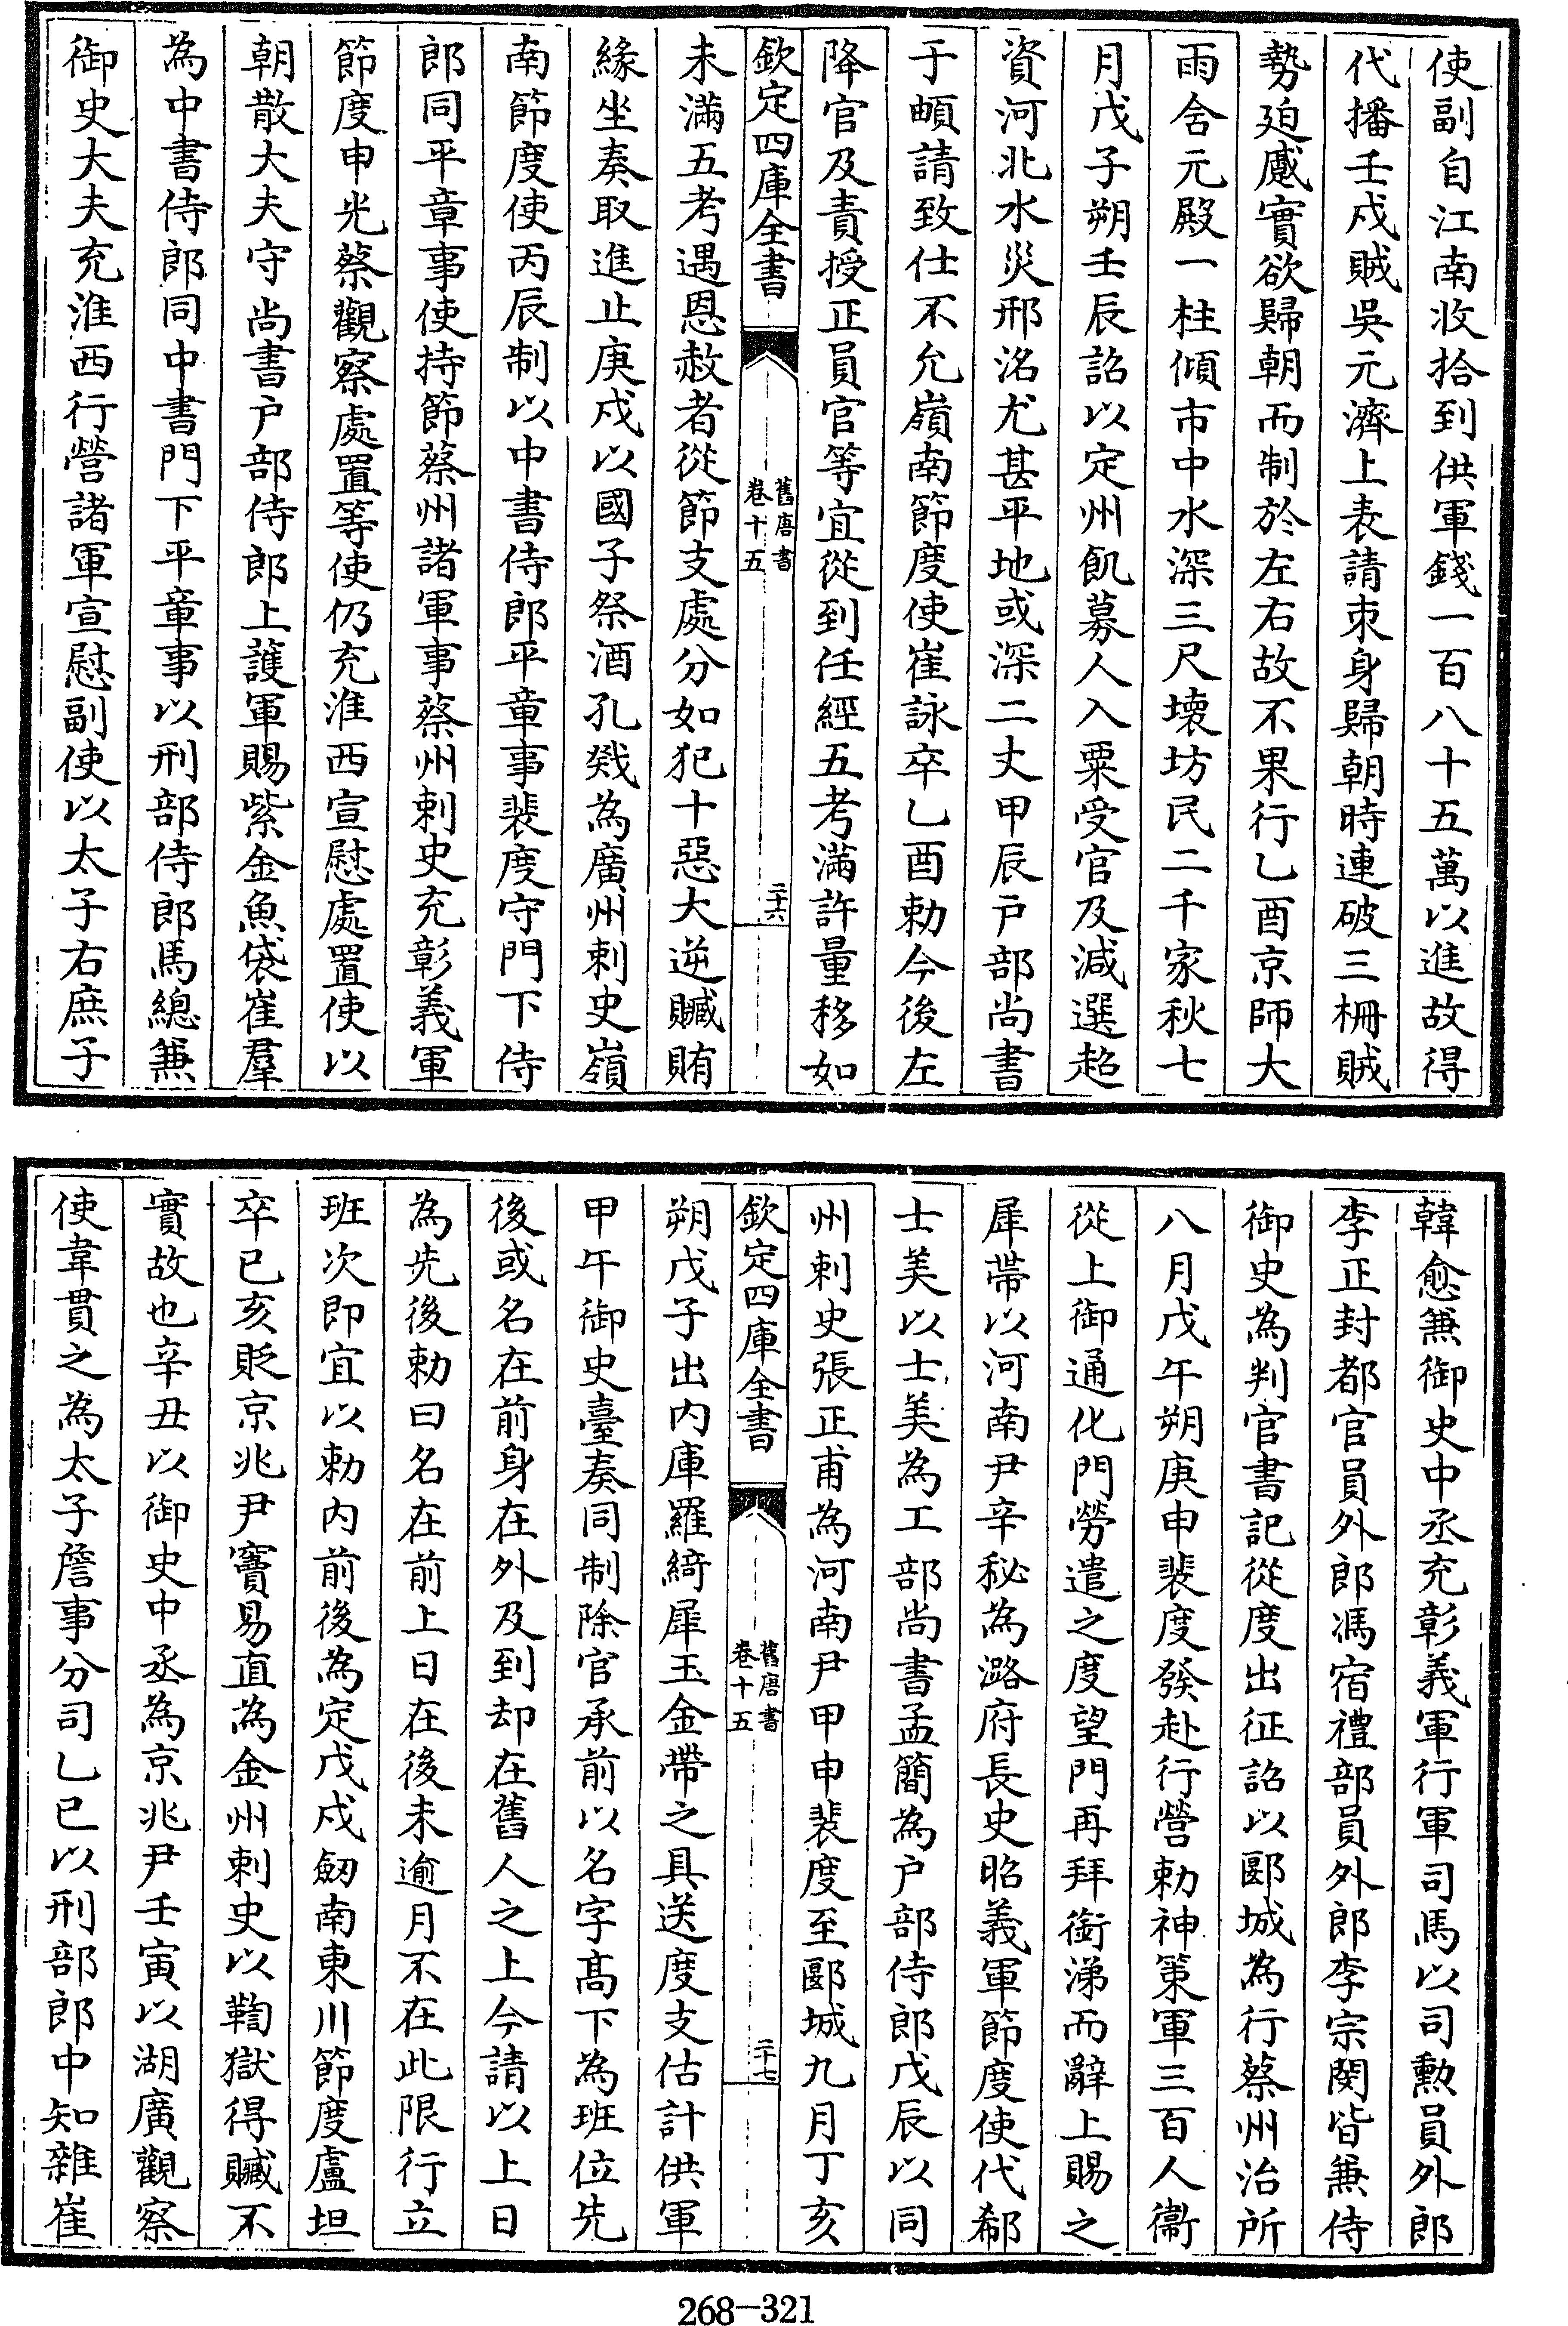 使副自江南收拾到供軍錢一百八十五萬以進故得
代播壬戌賊吳元濟上表請束身歸朝時連破三柵賊
勢廹蹙實欲歸朝而制於左右故不果行乙酉京師大
雨含元殿一柱傾市中水深三尺壞坊民二千家秋七
月戊子朔壬辰詔以定州飢募人入粟受官及減選超
資河北水災邢洺尤甚平地或深二丈甲辰戶部尚書
于頔請致仕不允嶺南節度使崔詠卒乙酉勅今後左
降官及責授正員官等宜從到任經五考滿許量移如
欽定四庫全書
舊唐書
卷十五
二十六
未滿五考遇恩赦者從節支處分如犯十惡大逆贓賄
緣坐奏取進止庚戌以國子祭酒孔戣為廣州刺史嶺
南節度使丙辰制以中書侍郎平章事裴度守門下侍
郎同平章事使持節蔡州諸軍事蔡州刺史充彰義軍
節度申光蔡觀察處置等使仍充淮西宣慰處置使以
朝散大夫守尚書戶部侍郎上護軍賜紫金魚袋崔羣
為中書侍郎同中書門下平章事以刑部侍郎馬總兼
御史大夫充淮西行營諸軍宣慰副使以太子右庶子
韓愈兼御史中丞充彰義軍行軍司馬以司勲員外郎
李正封都官員外郎馮宿禮部員外郎李宗閔皆兼侍
御史為判官書記從度出征詔以郾城為行蔡州治所
八月戊午朔庚申裴度發赴行營勅神策軍三百人衞
從上御通化門勞遣之度望門再拜銜涕而辭上賜之
犀帶以河南尹辛秘為潞府長史昭義軍節度使代郗
士美以士美為工部尚書孟簡為戶部侍郎戊辰以同
州刺史張正甫為河南尹甲申裴度至郾城九月丁亥
欽定四庫全書
舊唐書
卷十五
二十七
朔戊子出內庫羅綺犀玉金帶之具送度支估計供軍
甲午御史臺奏同制除官承前以名字髙下為班位先
後或名在前身在外及到却在舊人之上今請以上日
為先後勅曰名在前上日在後未逾月不在此限行立
班次即宜以勅內前後為定戊戌劒南東川節度盧坦
卒已亥貶京兆尹竇易直為金州刺史以鞫獄得贓不
實故也辛丑以御史中丞為京兆尹壬寅以湖廣觀察
使韋貫之為太子詹事分司乙巳以刑部郎中知雜崔
268-321